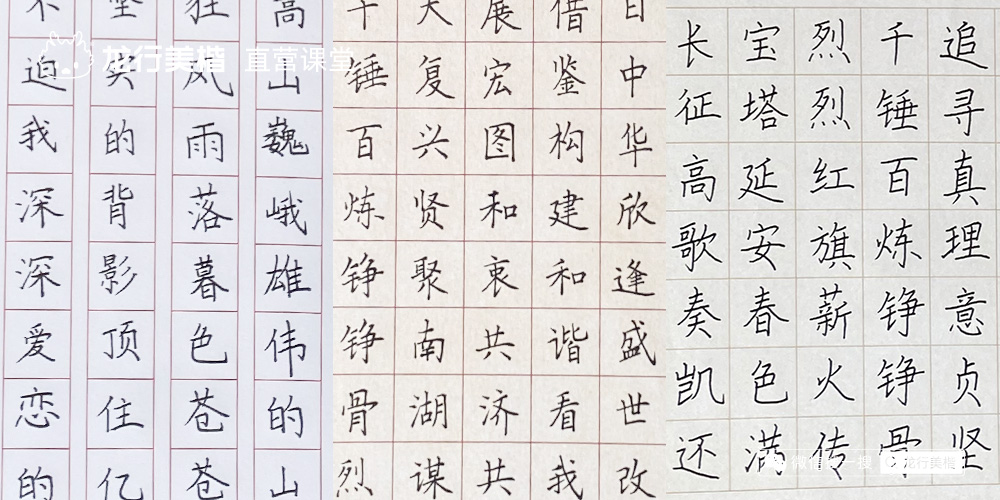 龙行美楷 直营课堂
高山巍峨雄伟的山
狂风雨落暮色苍苍
坚实的背影顶住亿
不迫我深深爱恋的
日中华欣逢盛世改
借鉴构建和谐看我
展宏图和衷共济共
大复兴贤聚南湖谋
千锤百炼铮铮骨烈
追寻真理意贞坚
千锤百炼铮铮骨
烈烈红旗薪火传
宝塔延安春色满
长征高歌奏凯还
微信搜一搜 龙行美楷